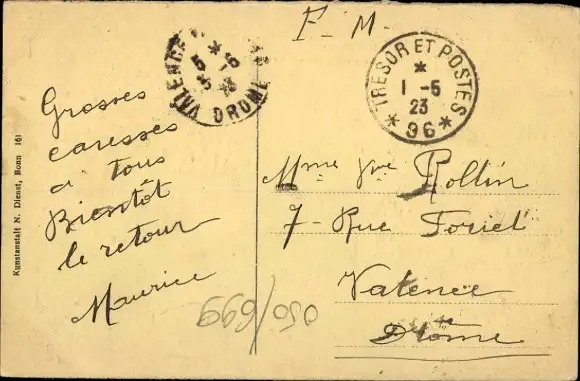 F. M.
VALENCE
5 *
5-5
23
DROME
TRESOR ET POSTES
*
1 -5
23
* 96 *
Grosses
caresses
à tous
Bientôt
le retour
Maurice
Mme Vve Rollin
7 - Rue
Valence
Drôme
Kunstanstalt N. Dienst, Bonn 161
050/6699